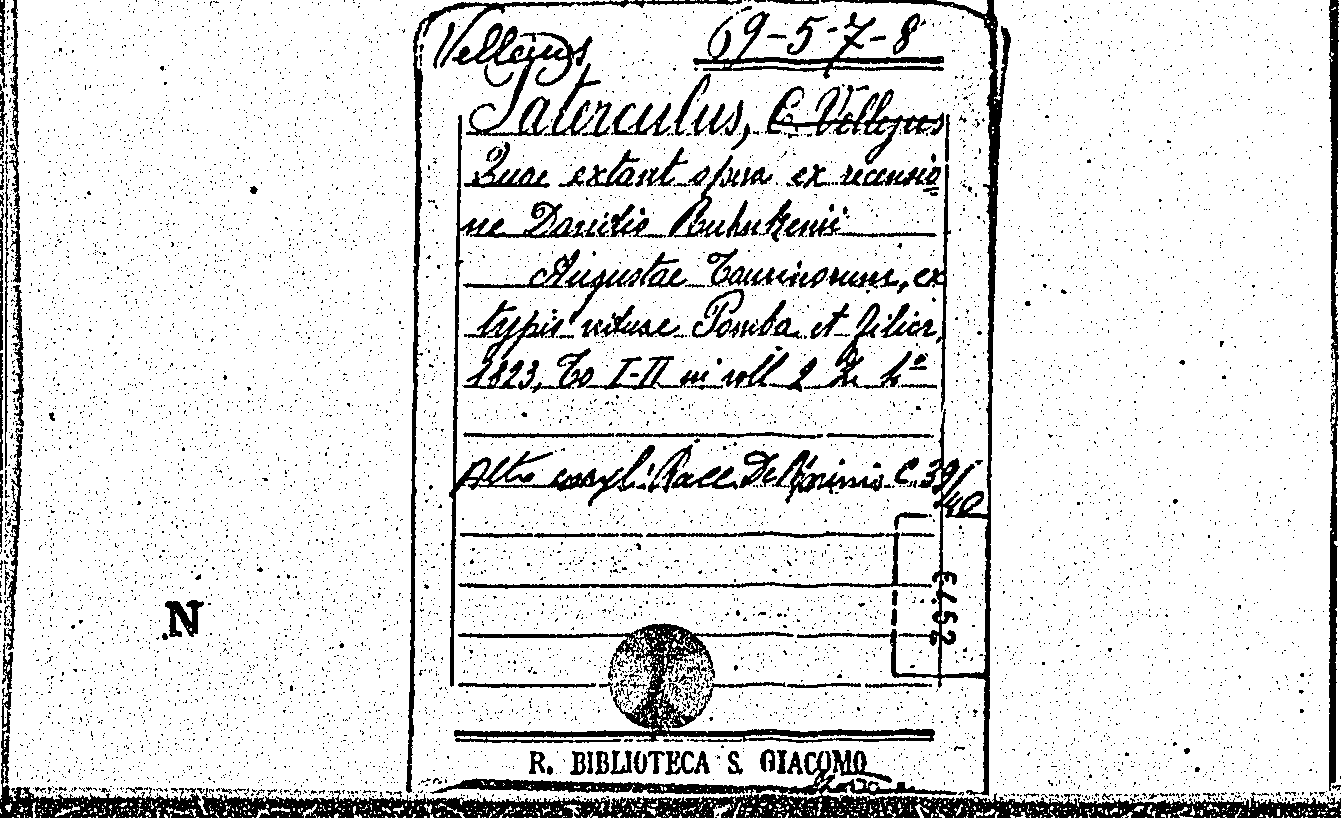 Vellejus 69-5-7-8
Paterculus, C. Vellejus
Quae extant opera ex recensio
ne Davidis Ruhnkenii
Augustae Taurinorum, ex
typis viduae Pomba et filior,
1823, To I-II in voll 2
Altro esempl: Racc. De Marinis C 39/40
3452
N
R. BIBLIOTECA S. GIACOMO